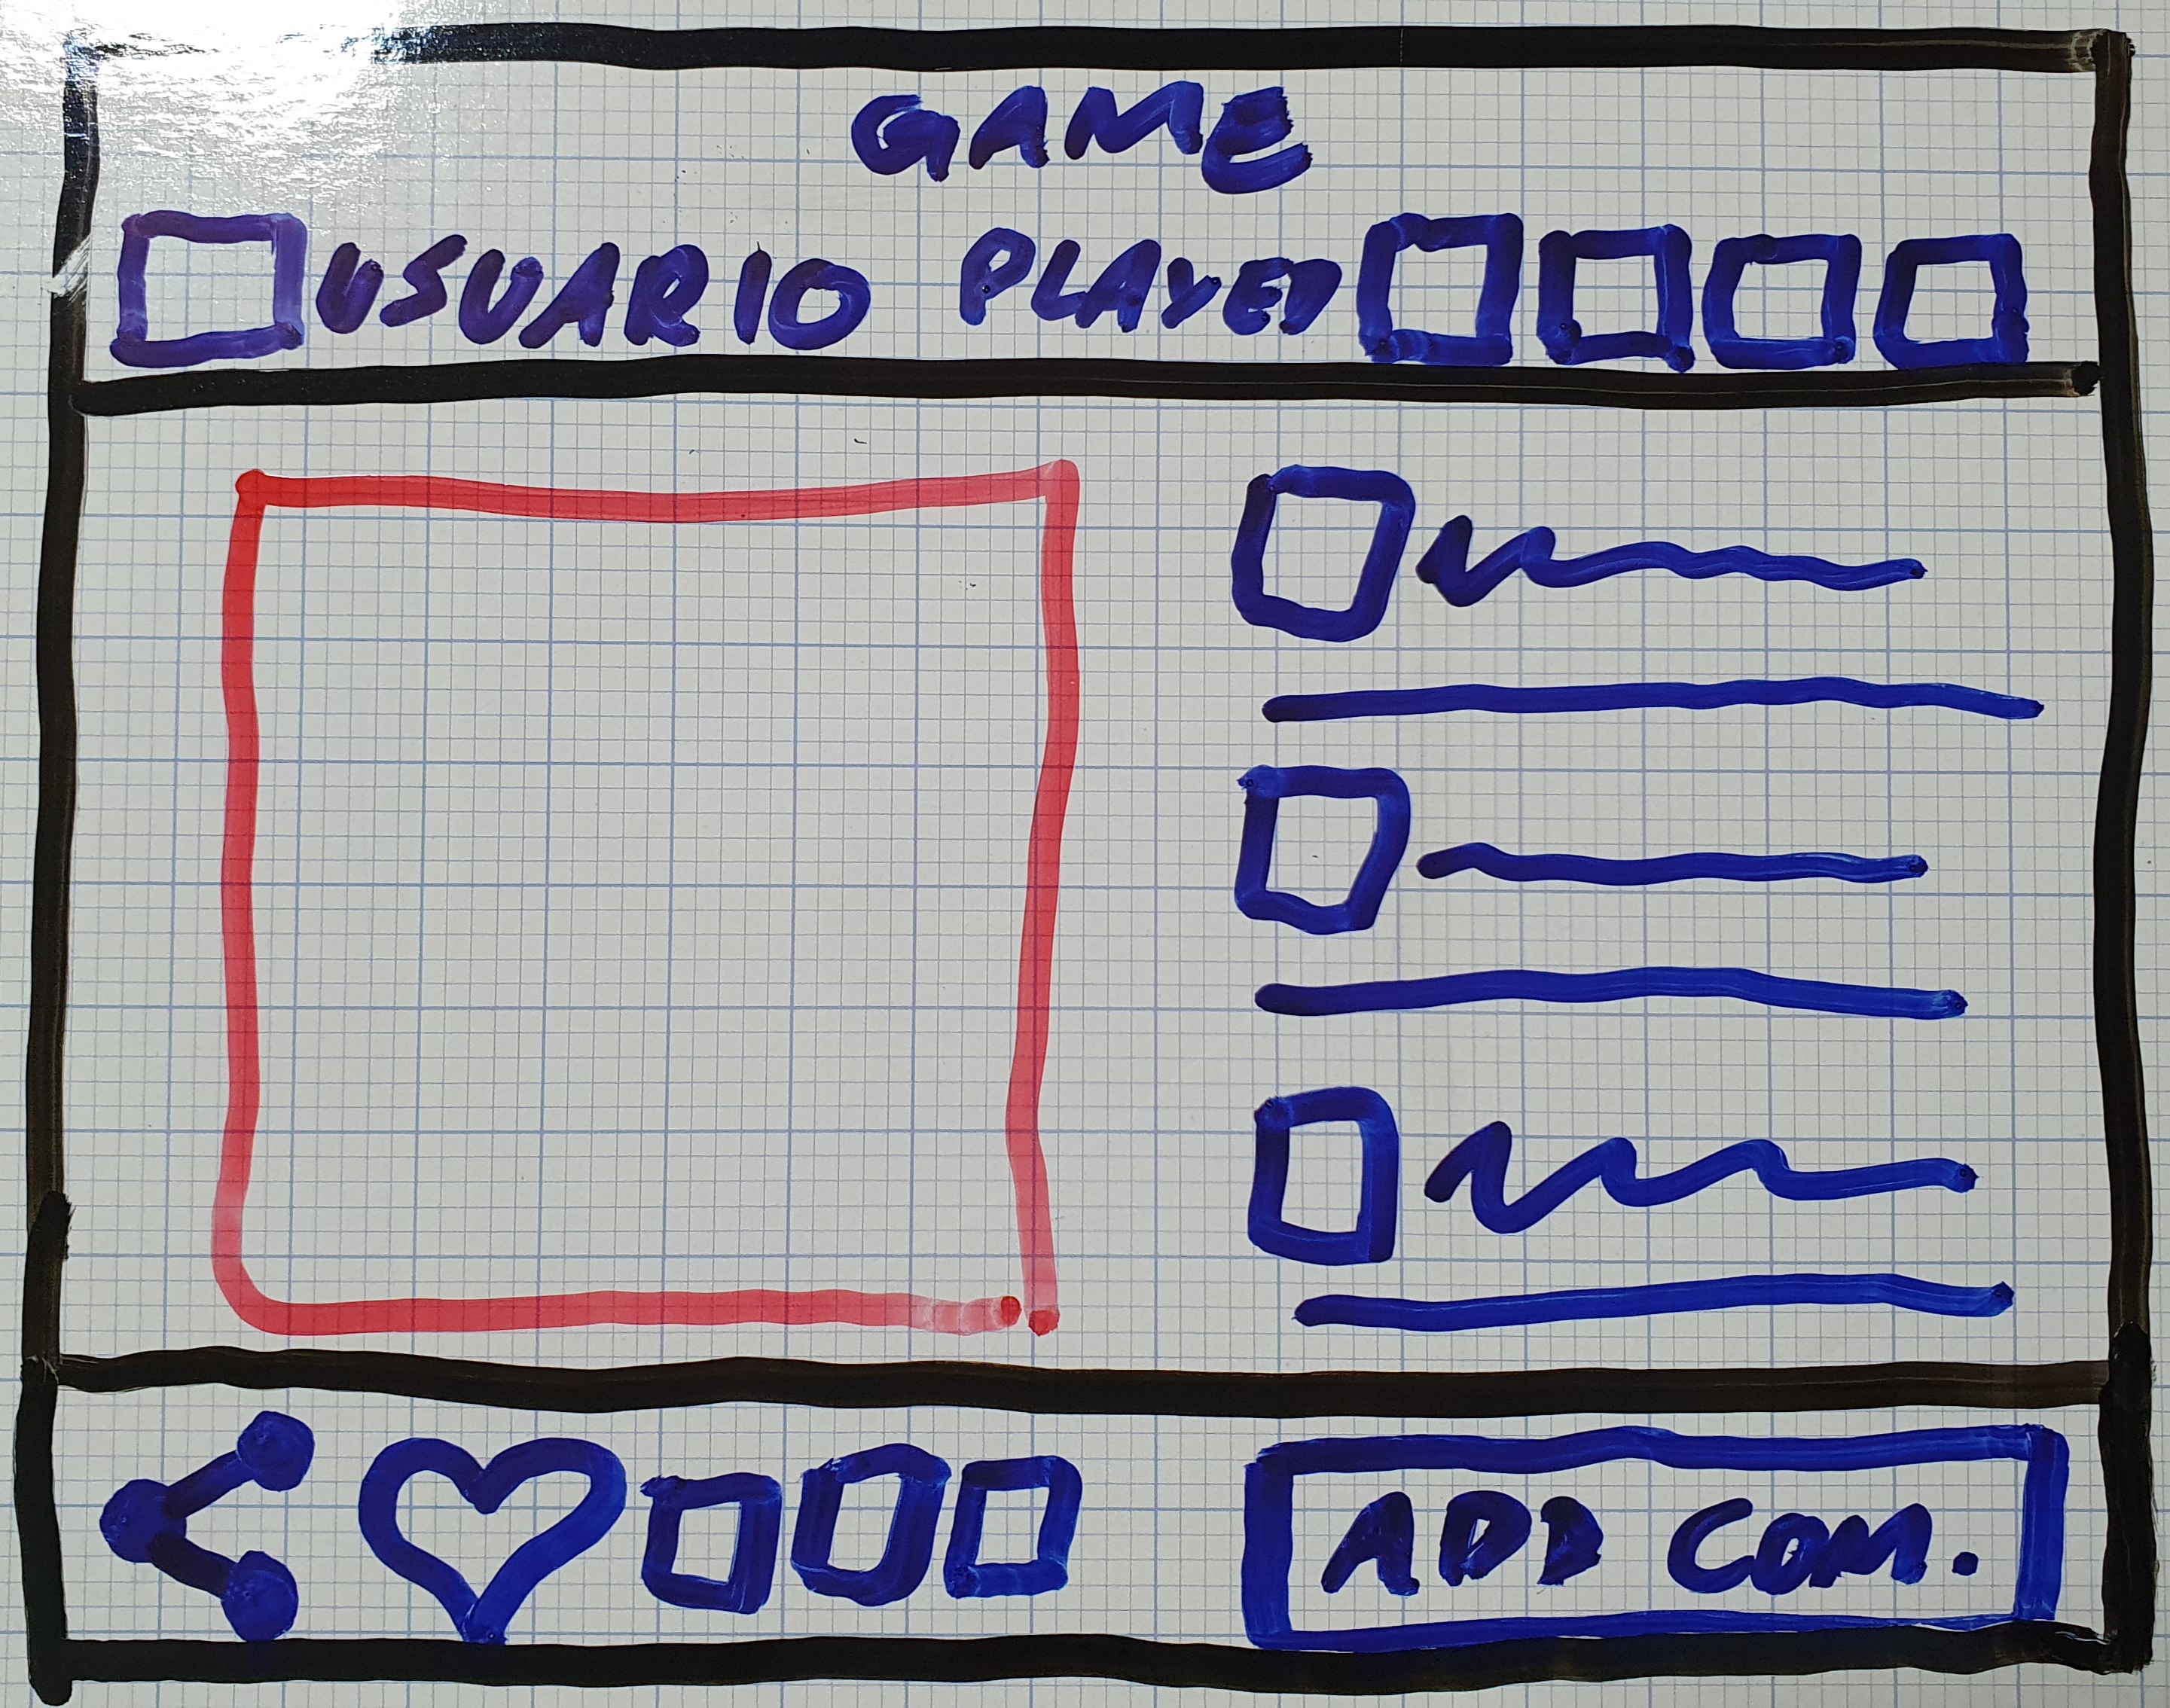 GAME
USUARIO PLAYED
ADD COM.